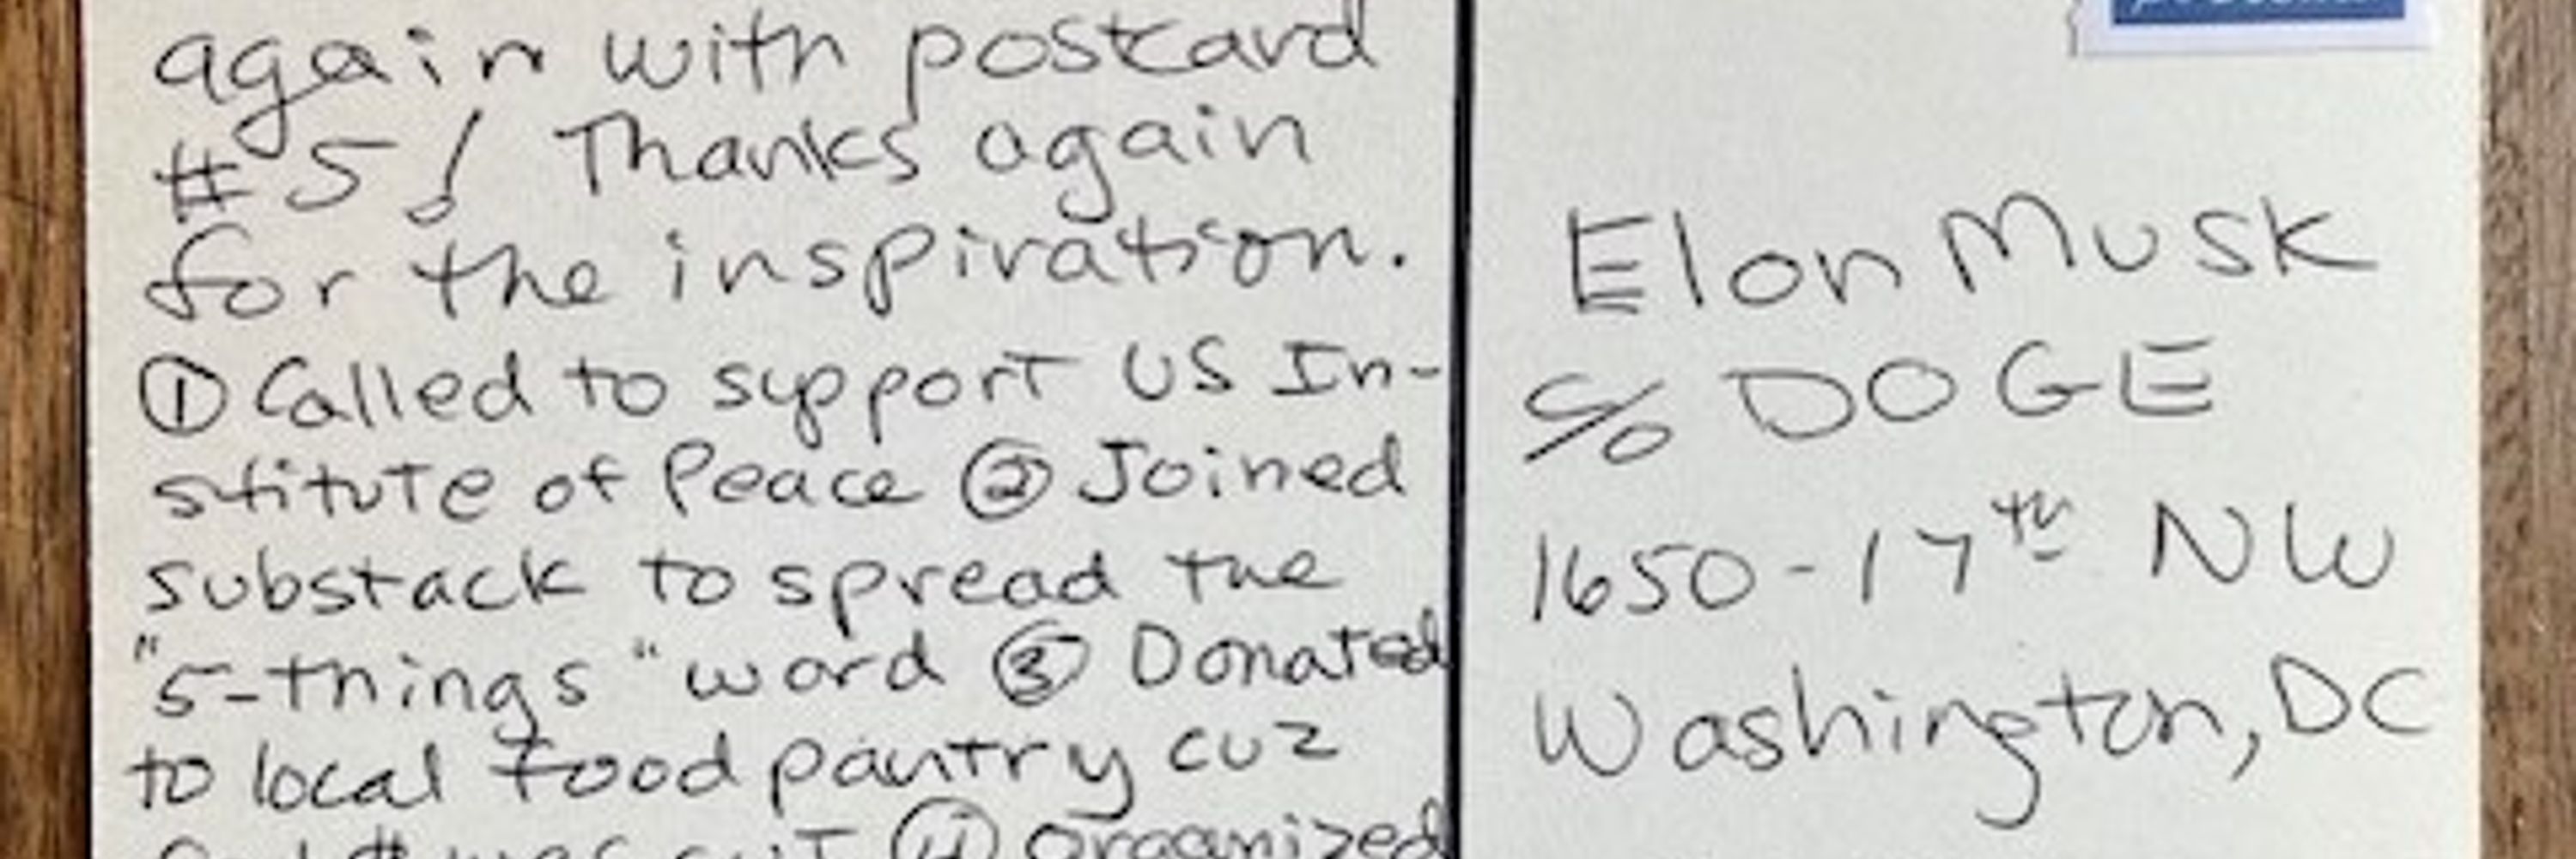 again with postcard
#5! Thanks again
for the inspiration.
① Called to support US In-
stitute of Peace ② Joined
substack to spread the
"5-things" word ③ Donated
to local food pantry cuz
was cut ④ organized
Elon Musk
c/o DOGE
1650-17th NW
Washington, DC